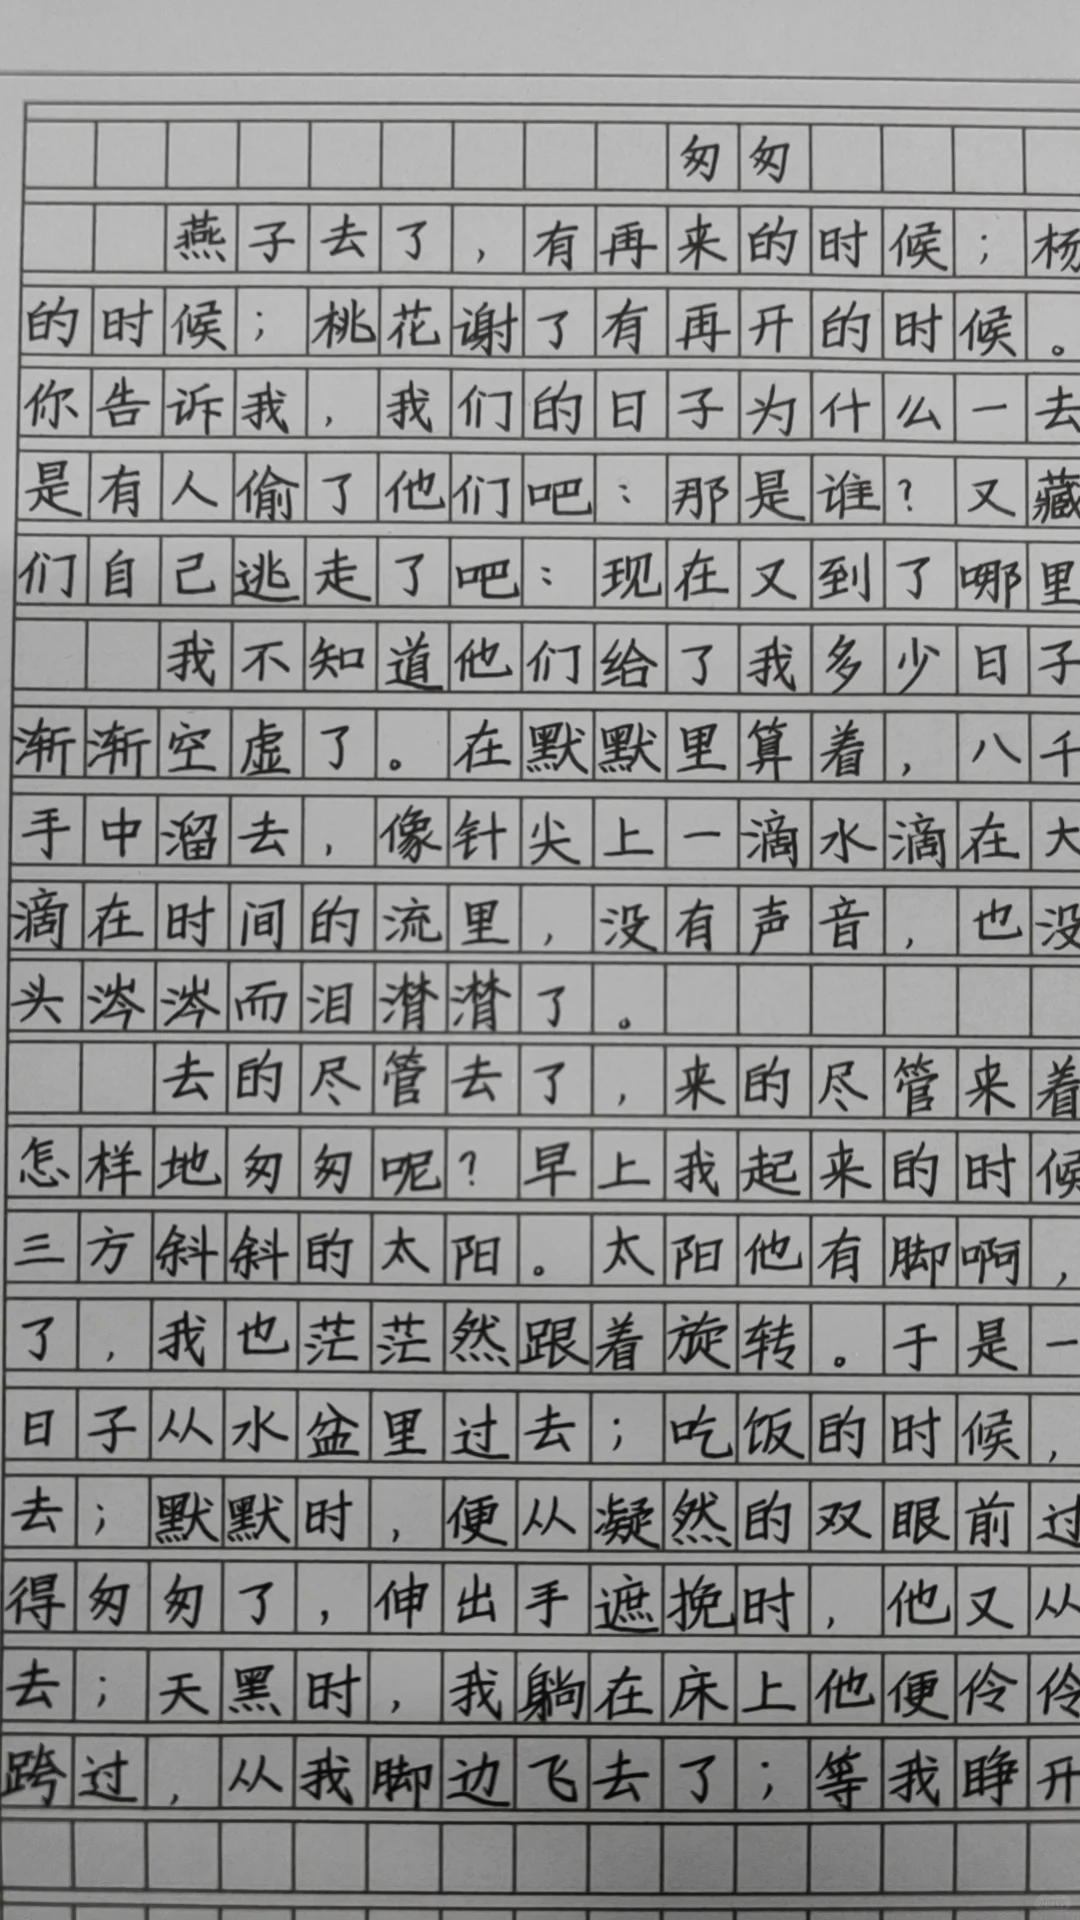 匆匆
燕子去了，有再来的时候；杨
的时候；桃花谢了有再开的时候。
你告诉我，我们的日子为什么一去
是有人偷了他们吧：那是谁？又藏
们自己逃走了吧：现在又到了哪里
我不知道他们给了我多少日子
渐渐空虚了。在默默里算着，八千
手中溜去，像针尖上一滴水滴在大
滴在时间的流里，没有声音，也没
头涔涔而泪潸潸了。
去的尽管去了，来的尽管来着
怎样地匆匆呢？早上我起来的时候
三方斜斜的太阳。太阳他有脚啊，
了，我也茫茫然跟着旋转。于是一
日子从水盆里过去；吃饭的时候，
去；默默时，便从凝然的双眼前过
得匆匆了，伸出手遮挽时，他又从
去；天黑时，我躺在床上他便伶伶
跨过，从我脚边飞去了；等我睁开